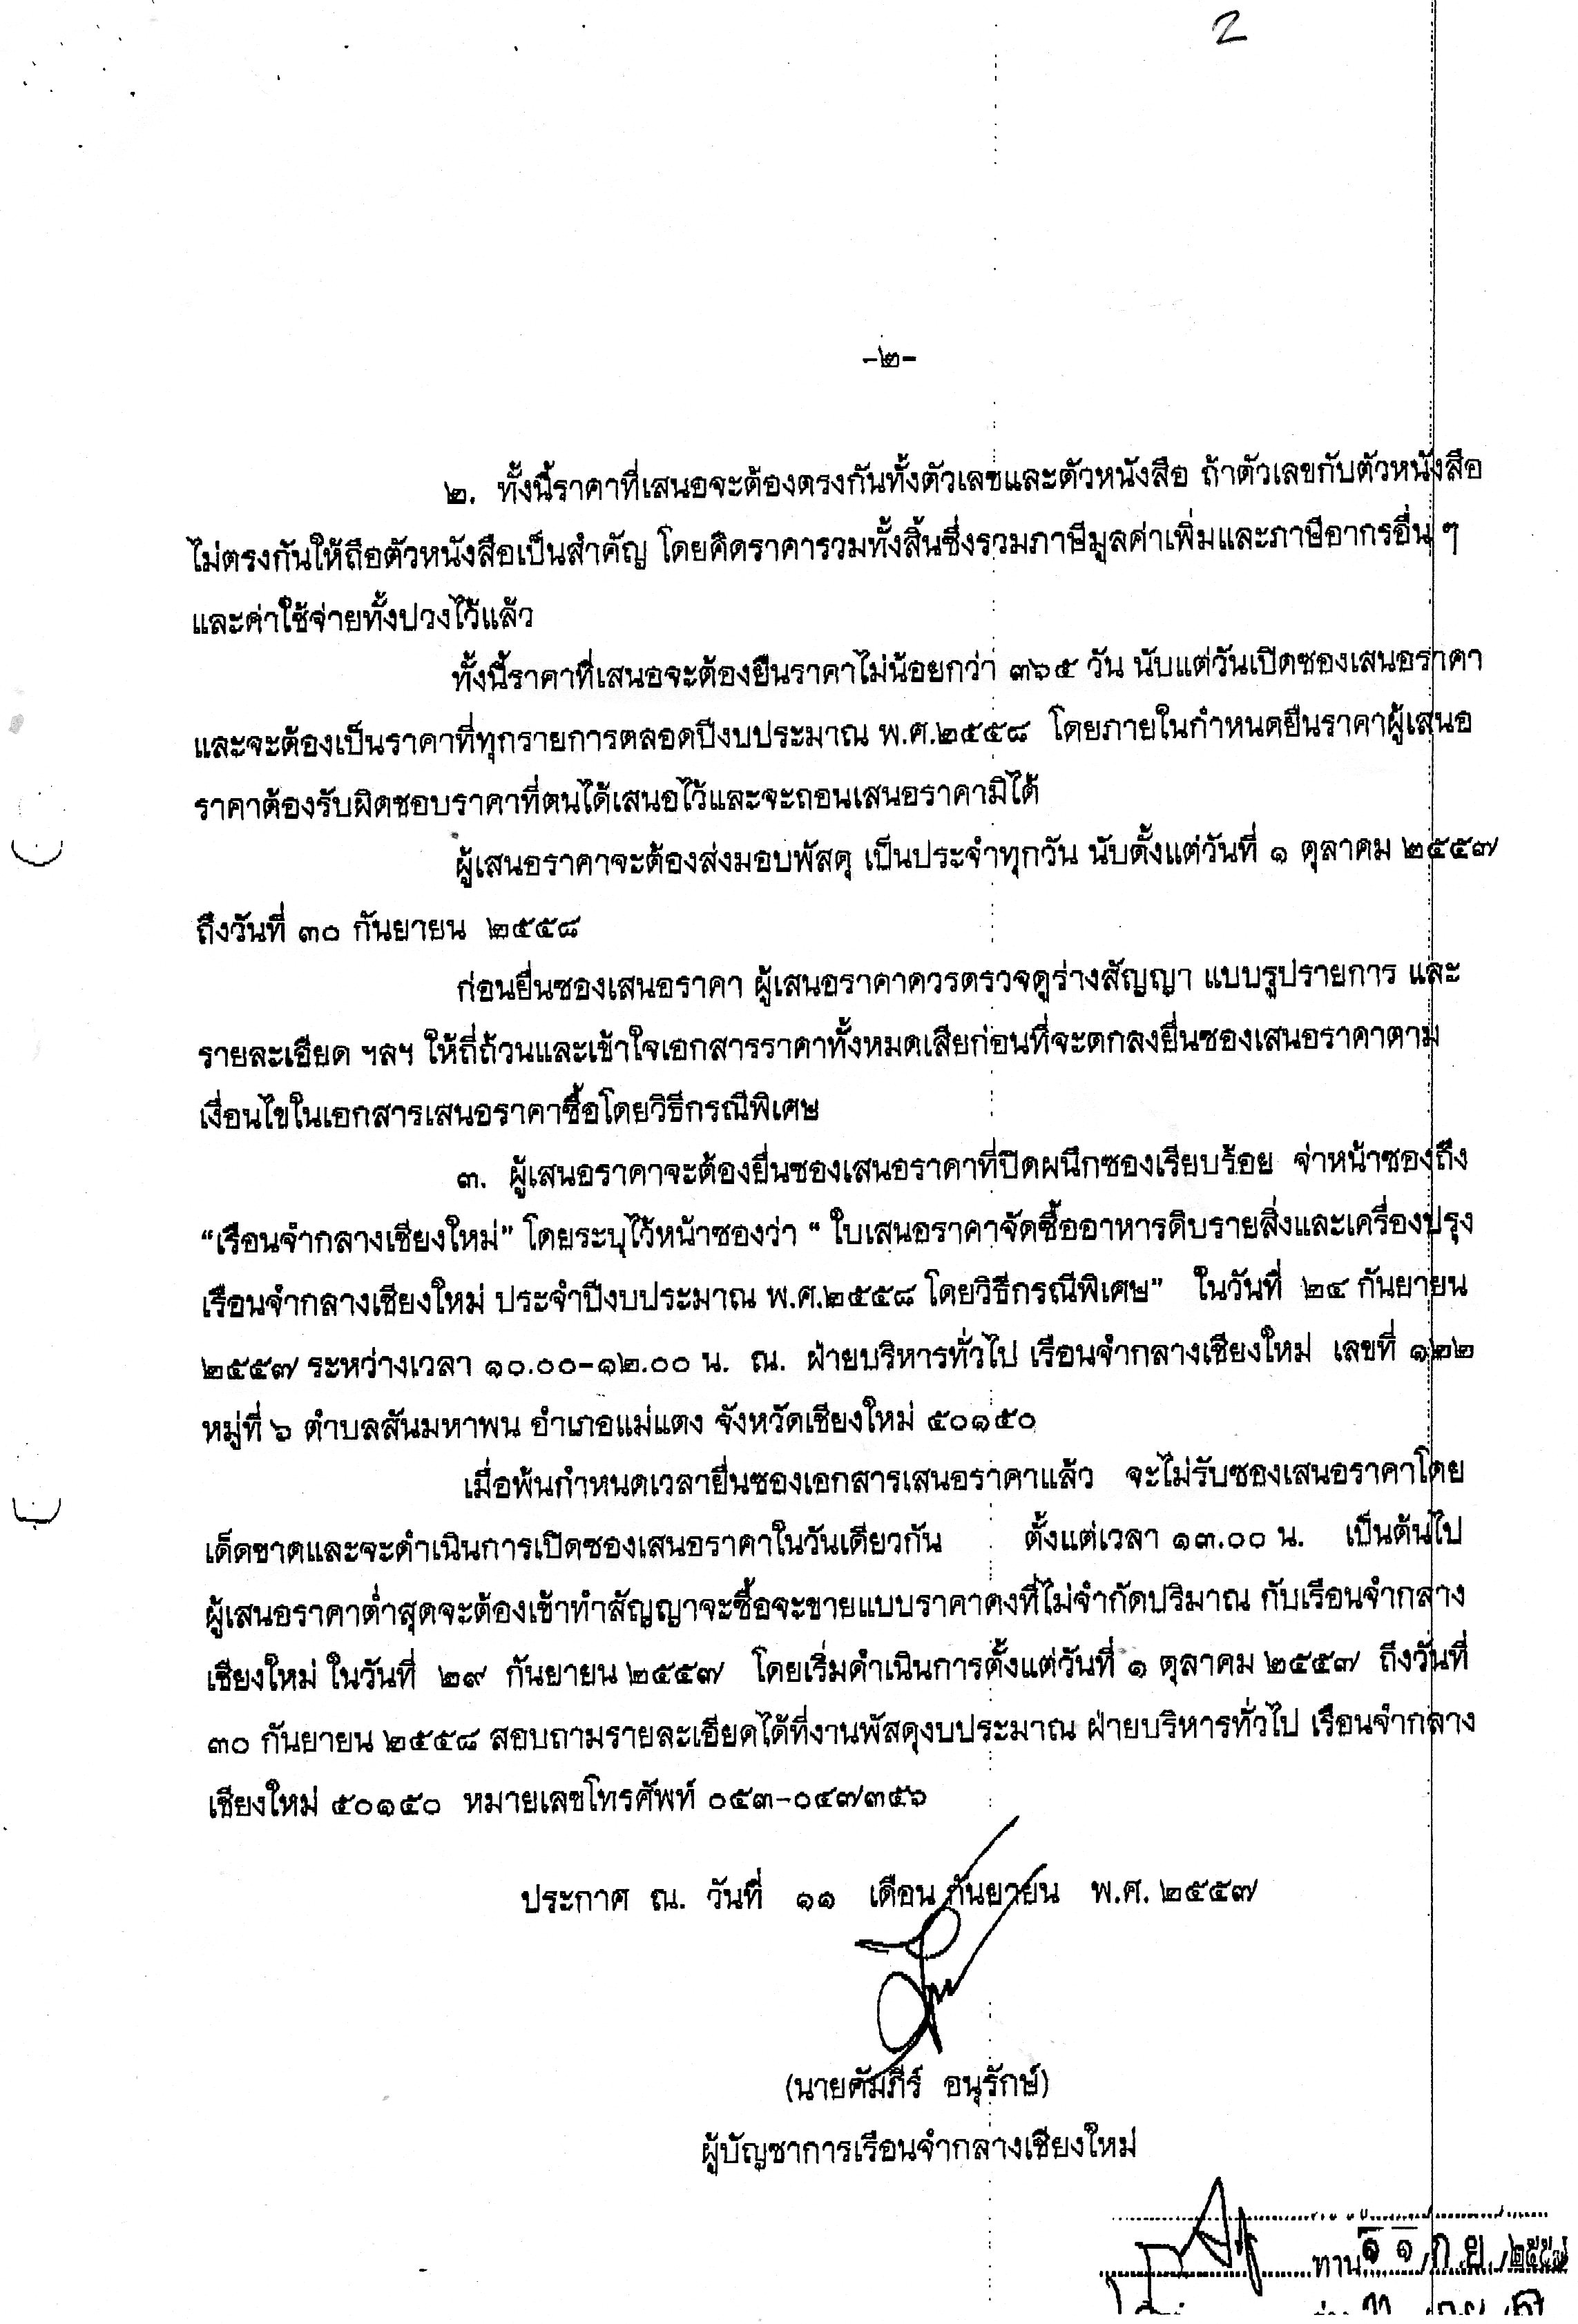 2
-๒-
๒. ทั้งนี้ราคาที่เสนอจะต้องตรงกันทั้งตัวเลขและตัวหนังสือ ถ้าตัวเลขกับตัวหนังสือ
ไม่ตรงกันให้ถือตัวหนังสือเป็นสำคัญ โดยคิดราคารวมทั้งสิ้นซึ่งรวมภาษีมูลค่าเพิ่มและภาษีอากรอื่น ๆ
และค่าใช้จ่ายทั้งปวงไว้แล้ว
ทั้งนี้ราคาที่เสนอจะต้องยืนราคาไม่น้อยกว่า ๓๖๕ วัน นับแต่วันเปิดซองเสนอราคา
และจะต้องเป็นราคาที่ทุกรายการตลอดปีงบประมาณ พ.ศ.๒๕๕๘ โดยภายในกำหนดยืนราคาผู้เสนอ
ราคาต้องรับผิดชอบราคาที่ตนได้เสนอไว้และจะถอนเสนอราคามิได้
ผู้เสนอราคาจะต้องส่งมอบพัสดุ เป็นประจำทุกวัน นับตั้งแต่วันที่ ๑ ตุลาคม ๒๕๕๗
ถึงวันที่ ๓๐ กันยายน ๒๕๕๘
ก่อนยื่นซองเสนอราคา ผู้เสนอราคาควรตรวจดูร่างสัญญา แบบรูปรายการ และ
รายละเอียด ฯลฯ ให้ถี่ถ้วนและเข้าใจเอกสารราคาทั้งหมดเสียก่อนที่จะตกลงยื่นซองเสนอราคาตาม
เงื่อนไขในเอกสารเสนอราคาซื้อโดยวิธีกรณีพิเศษ
๓. ผู้เสนอราคาจะต้องยื่นซองเสนอราคาที่ปิดผนึกซองเรียบร้อย จ่าหน้าซองถึง
"เรือนจำกลางเชียงใหม่" โดยระบุไว้หน้าซองว่า " ใบเสนอราคาจัดซื้ออาหารดิบรายสิ่งและเครื่องปรุง
เรือนจำกลางเชียงใหม่ ประจำปีงบประมาณ พ.ศ.๒๕๕๘ โดยวิธีกรณีพิเศษ" ในวันที่ ๒๔ กันยายน
๒๕๕๗ ระหว่างเวลา ๑๐.๐๐-๑๒.๐๐ น. ณ. ฝ่ายบริหารทั่วไป เรือนจำกลางเชียงใหม่ เลขที่ ๑๒๒
หมู่ที่ ๖ ตำบลสันมหาพน อำเภอแม่แตง จังหวัดเชียงใหม่ ๕๐๑๕๐
เมื่อพ้นกำหนดเวลายื่นซองเอกสารเสนอราคาแล้ว จะไม่รับซองเสนอราคาโดย
เด็ดขาดและจะดำเนินการเปิดซองเสนอราคาในวันเดียวกัน ตั้งแต่เวลา ๑๓.๐๐ น. เป็นต้นไป
ผู้เสนอราคาต่ำสุดจะต้องเข้าทำสัญญาจะซื้อจะขายแบบราคาคงที่ไม่จำกัดปริมาณ กับเรือนจำกลาง
เชียงใหม่ ในวันที่ ๒๙ กันยายน ๒๕๕๗ โดยเริ่มดำเนินการตั้งแต่วันที่ ๑ ตุลาคม ๒๕๕๗ ถึงวันที่
๓๐ กันยายน ๒๕๕๘ สอบถามรายละเอียดได้ที่งานพัสดุงบประมาณ ฝ่ายบริหารทั่วไป เรือนจำกลาง
เชียงใหม่ ๕๐๑๕๐ หมายเลขโทรศัพท์ ๐๕๓-๐๔๗๓๕๖
ประกาศ ณ. วันที่ ๑๑ เดือน กันยายน พ.ศ. ๒๕๕๗
(นายคัมภีร์ อนุรักษ์)
ผู้บัญชาการเรือนจำกลางเชียงใหม่
ทาน ๑๑ / ก.ย. / ๒๕๕๗